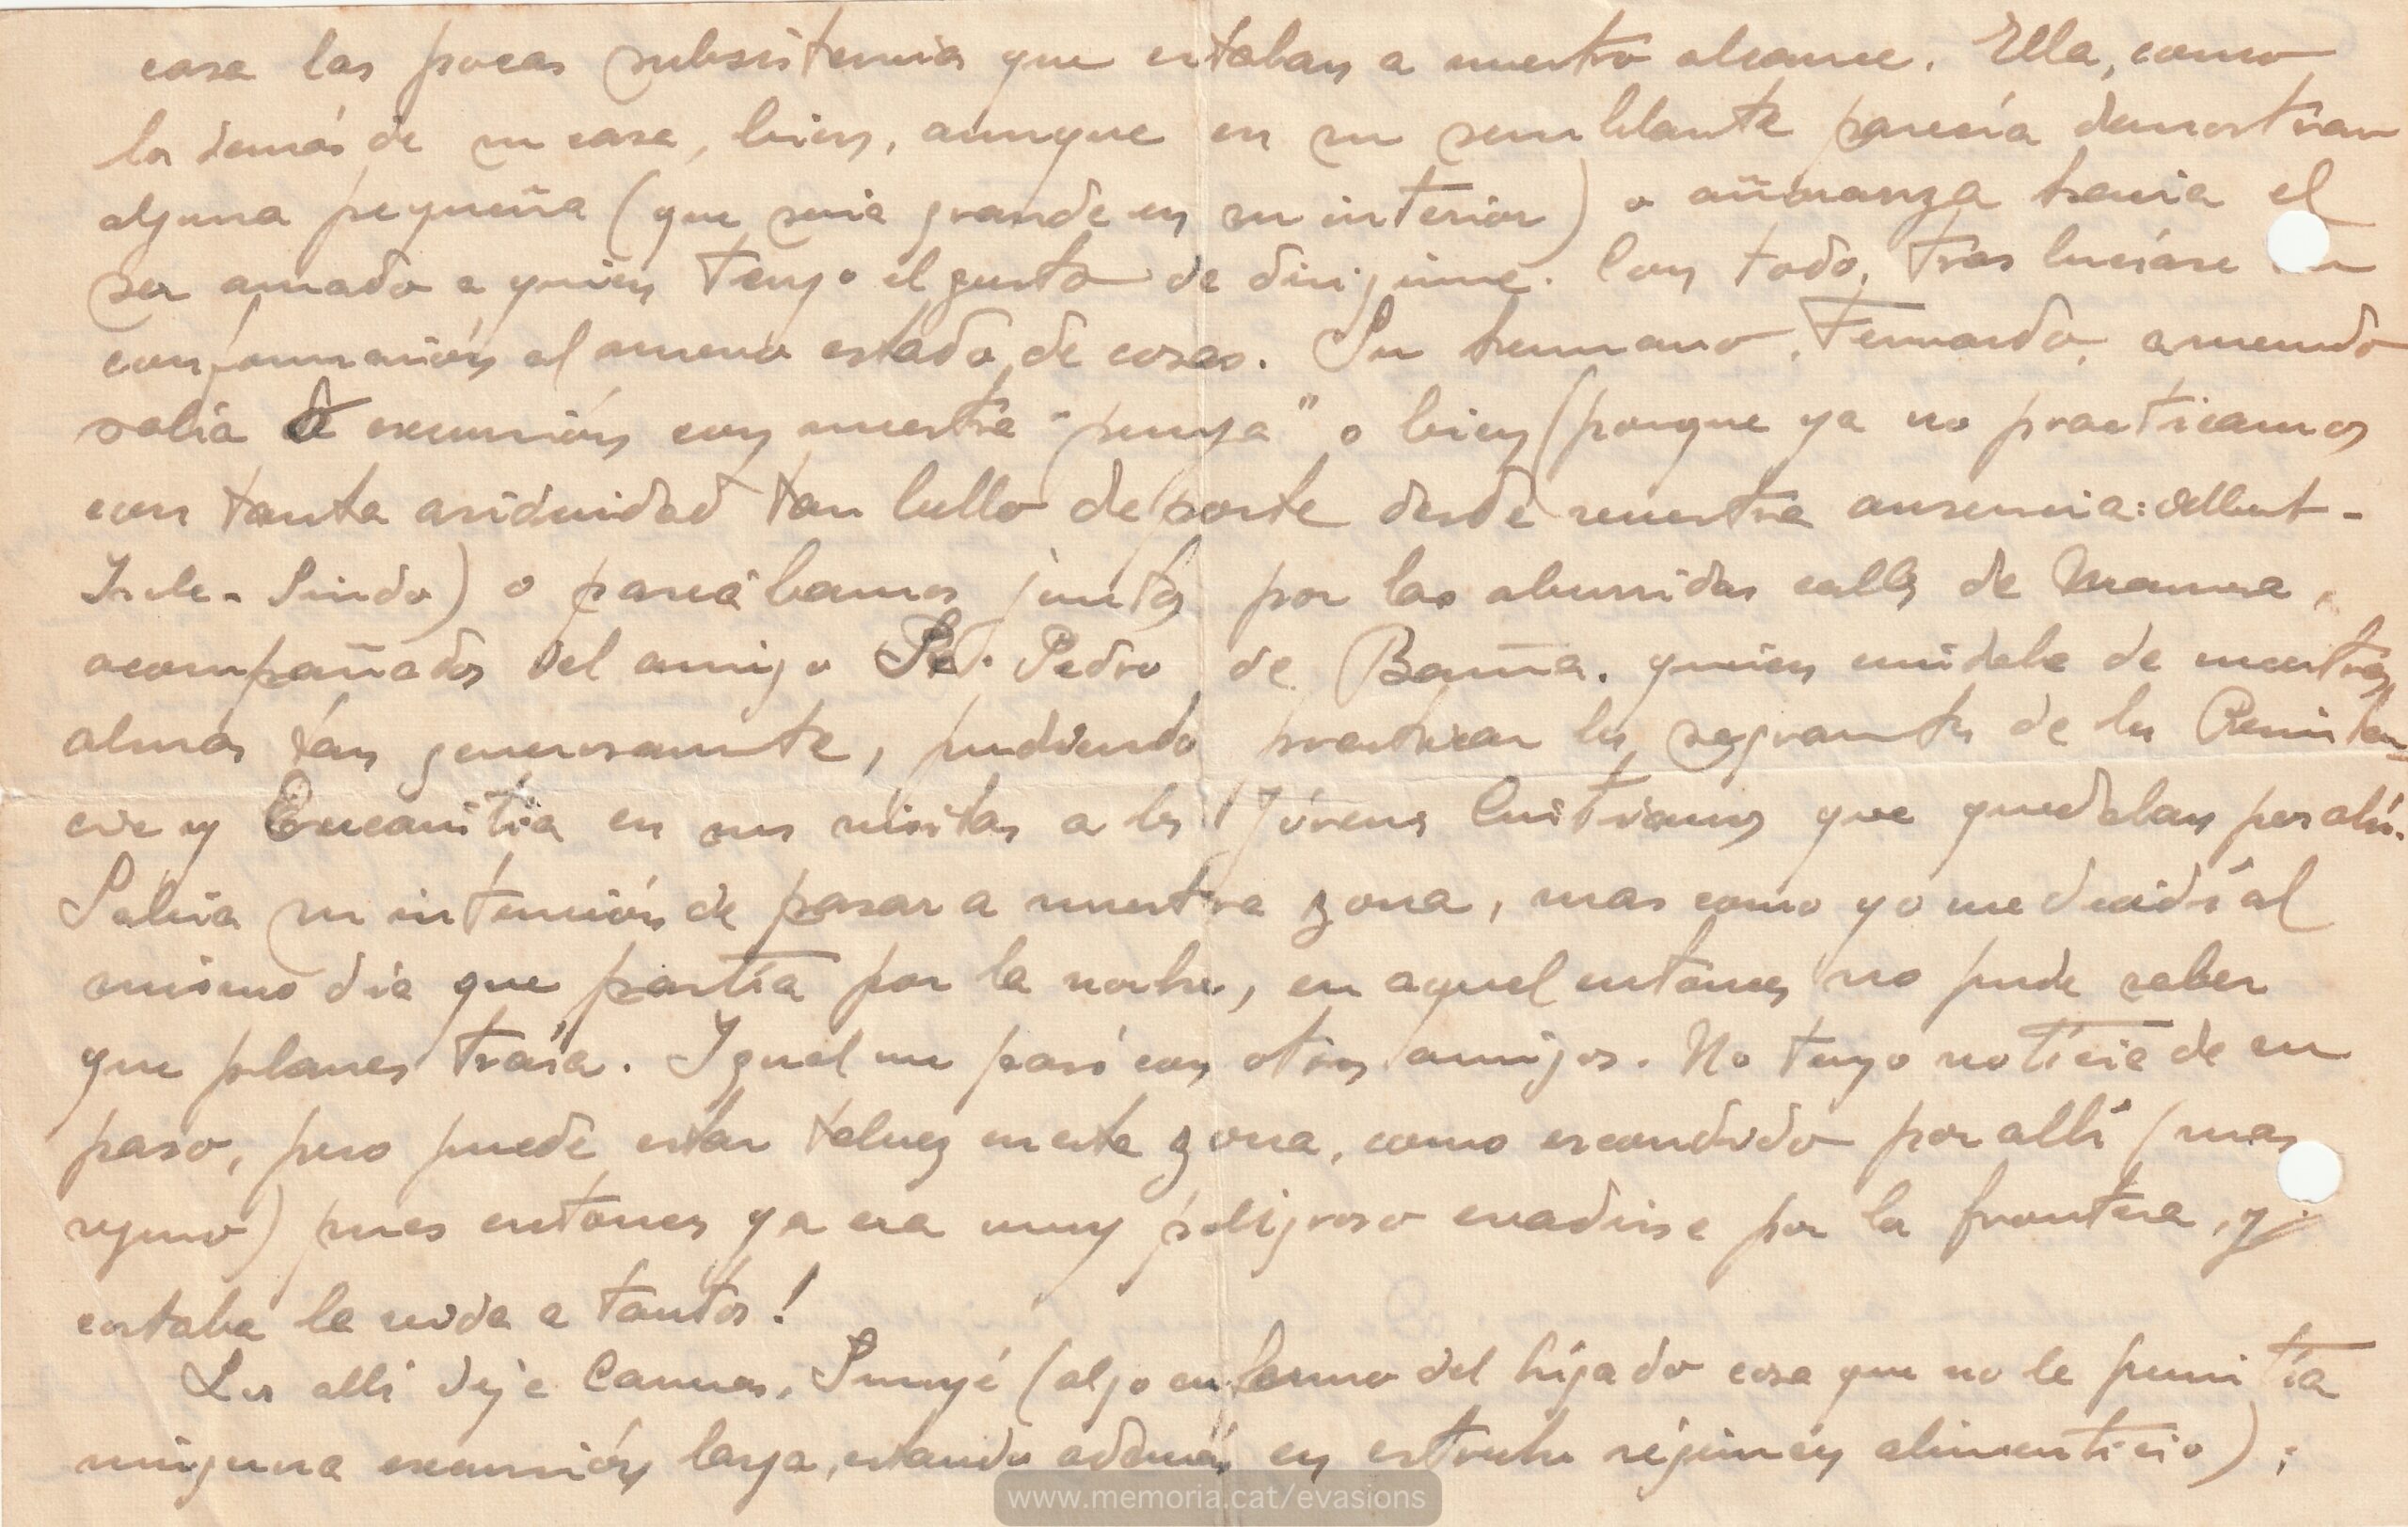 casa las pocas subsistencias que estaban a nuestro alcance. Ella, como
los demás de su casa, bien, aunque en su semblante parecía demostrar
alguna pequeña (que seria grande en su interior) o añoranza hacia el
ser amado a quien tengo el gusto de dirigirme. Con todo, tras lucíase su
conformación al ameno estado de cosas. Su hermano, Fernando, amenudo
salía de excursión con nuestra "penya" o bien (porque ya no practicamos
con tanta asiduidad tan bello deporte desde vuestra ausencia: Albert-
) o paseábamos juntos por las aburridas calles de Manresa,
acompañados del amigo Pedro de quien cuidaba de nuestras
almas tan generosamente, pudiendo practicar los sagrantos de la Peniten
cia y Eucaristía en sus visitas a los Jóvenes Cristianos que quedaban por ahí.
Sabia su intención de pasar a nuestra zona, mas como yo me decidí al
mismo dia que partía por la noche, en aquel entonces no pude saber
que planes traía. Igual me pasó con otros amigos. No tengo noticia de su
paso, pero puede estar talvez en esta zona, como escondido por allí (mas
seguro) pues entonces ya era muy peligroso evadirse por la frontera, y
costaba la vida a tantos!
Por alli dejé Camps, Sunyé (algo enfermo del hígado cosa que no le permitía
ninguna excursión larga, estando además en estrecho régimen alimenticio);
www.memoria.cat/evasions